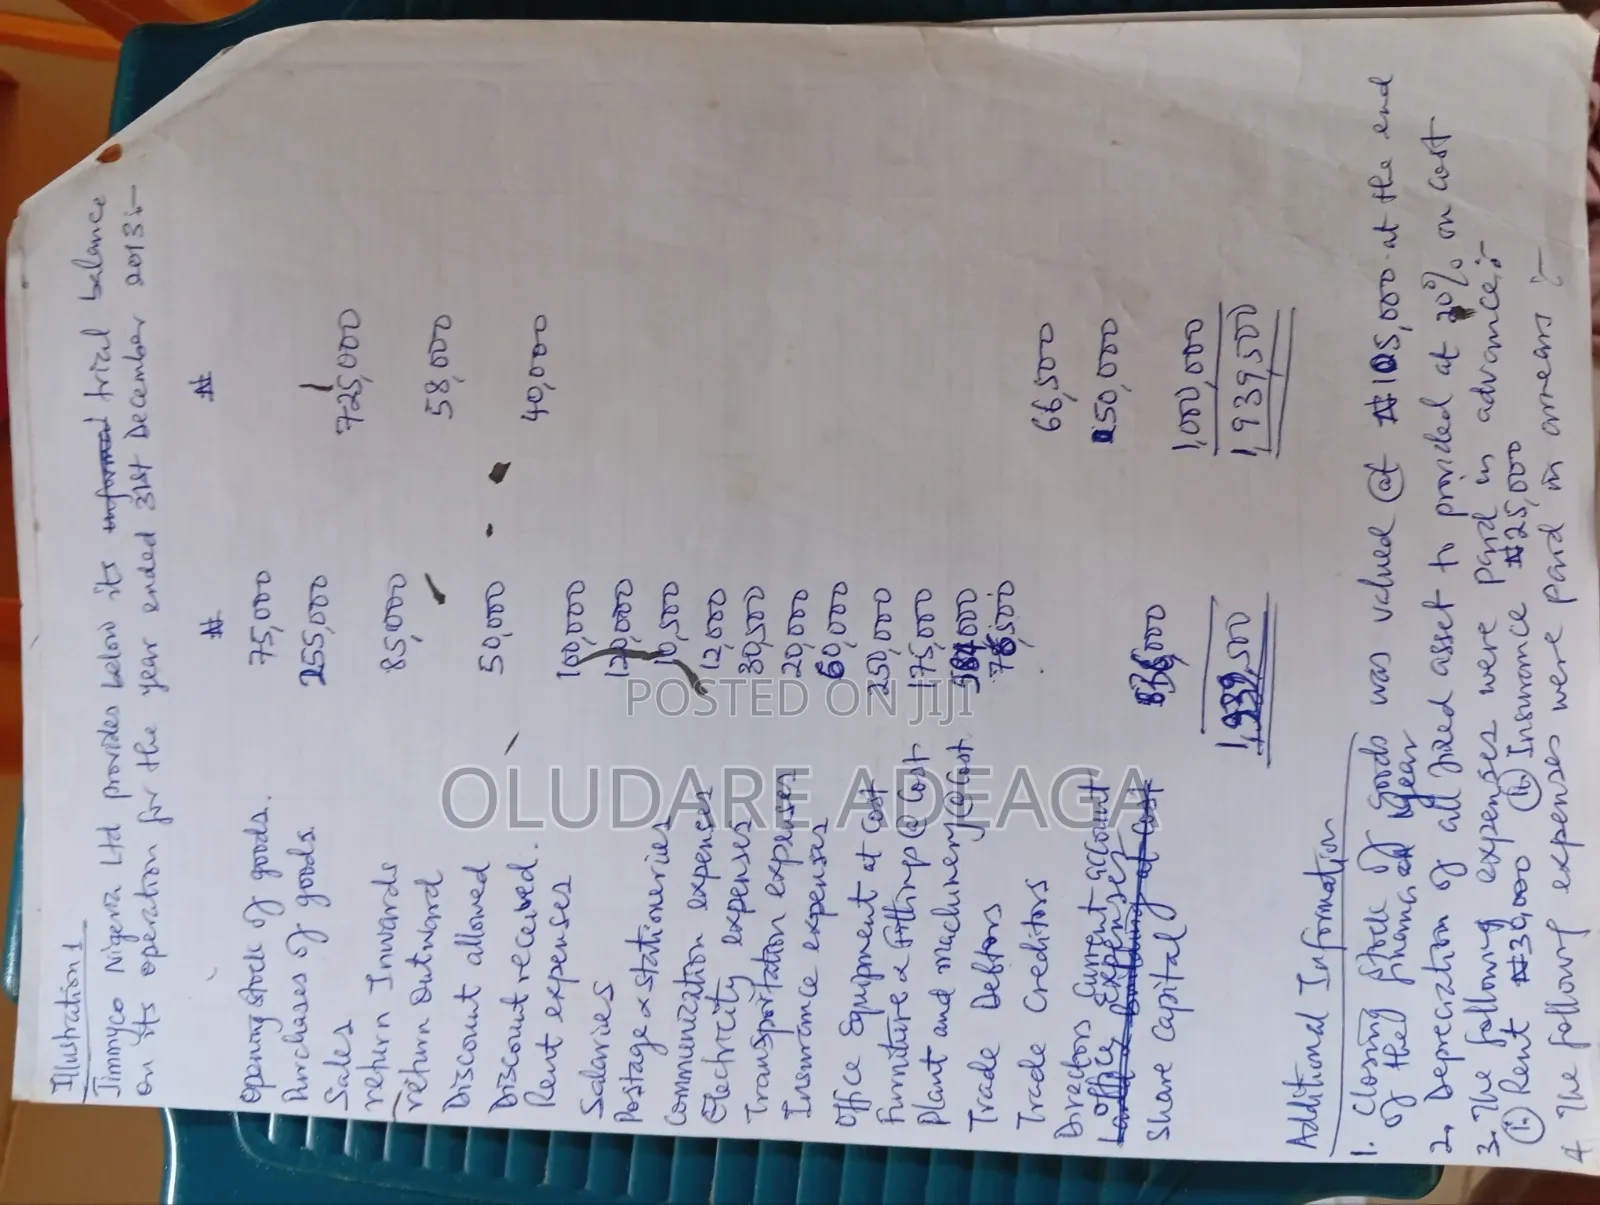 Illustration 1
Jimmyco Nigeria Ltd provides below its informed trial balance
on its operation for the year ended 31st December 2013:-
₦ ₦
Opening stock of goods. 75,000
Purchases of goods. 255,000
Sales 725,000
return Inwards 85,000
return outward 58,000
Discount allowed 50,000
Discount received. 40,000
Rent expenses 100,000
Salaries 120,000
Postage & stationeries 10,500
Communication expenses 12,000
Electricity expenses 30,500
Transportation expenses 20,000
Insurance expenses 60,000
Office Equipment at Cost 250,000
Furniture & fittings @ Cost 175,000
Plant and machinery @ Cost
Trade Debtors
Trade Creditors 66,500
Directors Current account 50,000
Office Expenses
Land & building at Cost
Share Capital 1,000,000
1,939,500 1,939,500
Additional Information
1. Closing stock of goods was valued @ at ₦105,000 at the end
of the financial year
2. Depreciation of all fixed asset to provided at 20% on cost
3. The following expenses were paid in advance:-
(i) Rent ₦30,000 (ii) Insurance ₦25,000
4 The following expenses were paid in arrears :-
POSTED ON JIJI
OLUDARE ADEAGA